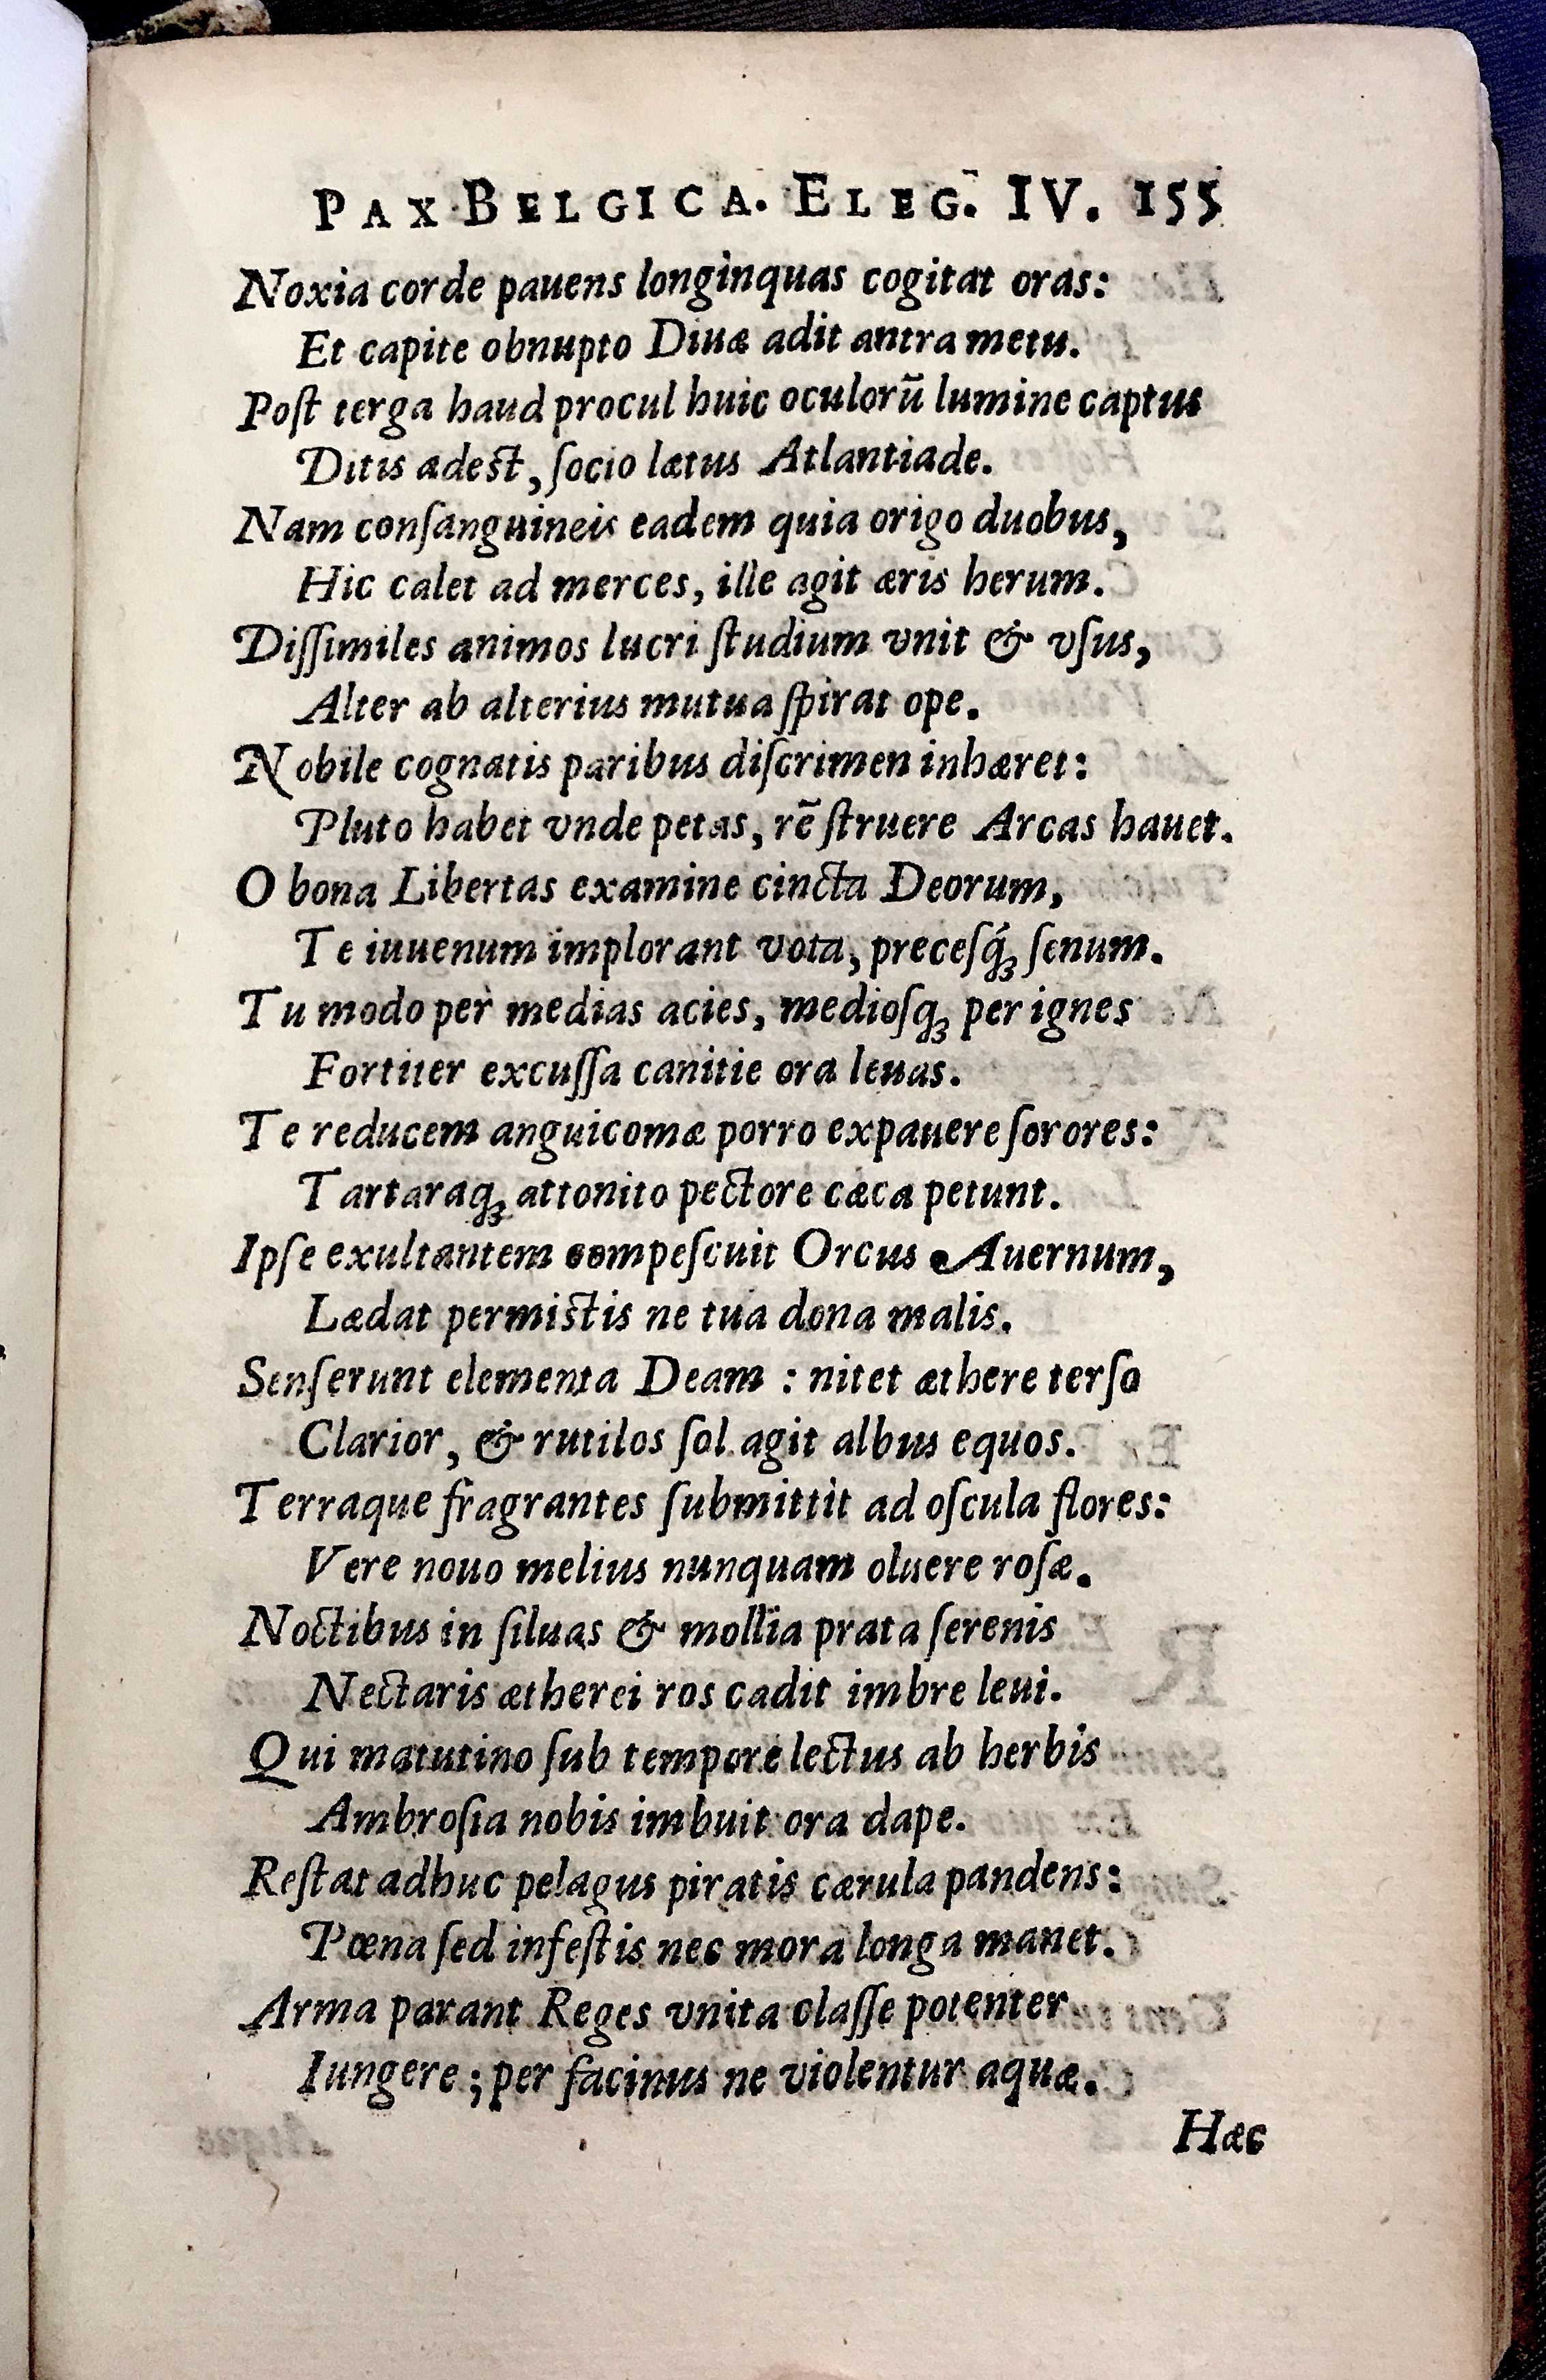 PAX BELGICA. ELEG. IV. 155
Noxia corde pauens longinquas cogitat oras:
Et capite obnupto Diuæ adit antra metu.
Poſt terga haud procul huic oculorū lumine captus
Ditis adeſt, ſocio lætus Atlantiade.
Nam conſanguineis eadem quia origo duobus,
Hic calet ad merces, ille agit æris herum.
Diſſimiles animos lucri ſtudium vnit & vſus,
Alter ab alterius mutua ſpirat ope.
Nobile cognatis paribus diſcrimen inhæret:
Pluto habet vnde petas, rē ſtruere Arcas hauet.
O bona Libertas examine cincta Deorum,
Te iuuenum implorant vota, preceſq́ꝫ ſenum.
Tu modo per medias acies, medioſqꝫ per ignes
Fortiter excuſſa canitie ora leuas.
Te reducem anguicomæ porro expauere ſorores:
Tartaraqꝫ attonito pectore cæca petunt.
Ipſe exultantem compeſcuit Orcus Auernum,
Lædat permiſtis ne tua dona malis.
Senſerunt elementa Deam : nitet æthere terſo
Clarior, & rutilos ſol agit albus equos.
Terraque fragrantes ſubmittit ad oſcula flores:
Vere nouo melius nunquam oluere roſæ.
Noctibus in ſiluas & mollia prata ſerenis
Nectaris ætherei ros cadit imbre leui.
Qui matutino ſub tempore lectus ab herbis
Ambroſia nobis imbuit ora dape.
Reſtat adhuc pelagus piratis cærula pandens:
Pœna ſed infeſtis nec mora longa manet.
Arma parant Reges vnita claſſe potenter
Iungere; per facinus ne violentur aquæ.
Hæc